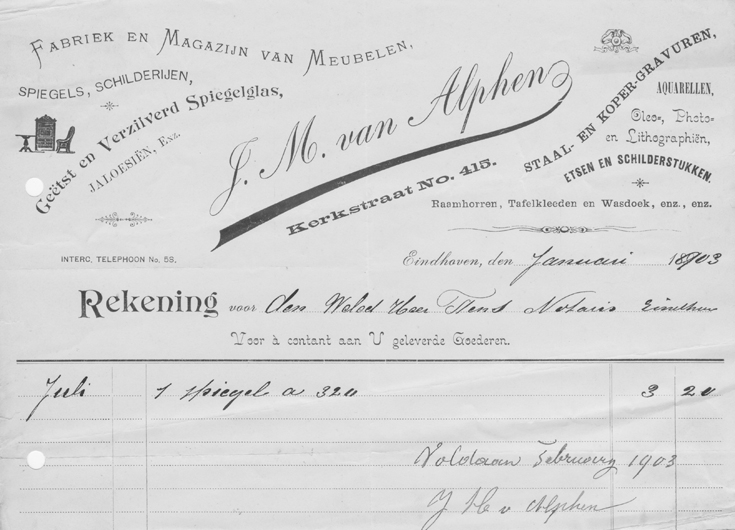 FABRIEK EN MAGAZIJN VAN MEUBELEN,
SPIEGELS, SCHILDERIJEN,
Geëtst en Verzilverd Spiegelglas,
JALOESIËN, Enz.
J. M. van Alphen
Kerkstraat No. 415.
STAAL- EN KOPER-GRAVUREN,
AQUARELLEN,
Oleo-, Photo-
en Lithographiën,
ETSEN EN SCHILDERSTUKKEN.
Raamhorren, Tafelkleeden en Wasdoek, enz., enz.
INTERC. TELEPHOON No. 58.
Eindhoven, den Januari 1903
Rekening voor den Heer Notaris
Voor à contant aan U geleverde Goederen.
Juli 1 spiegel a 320 3 20
Voldaan February 1903
J M v Alphen